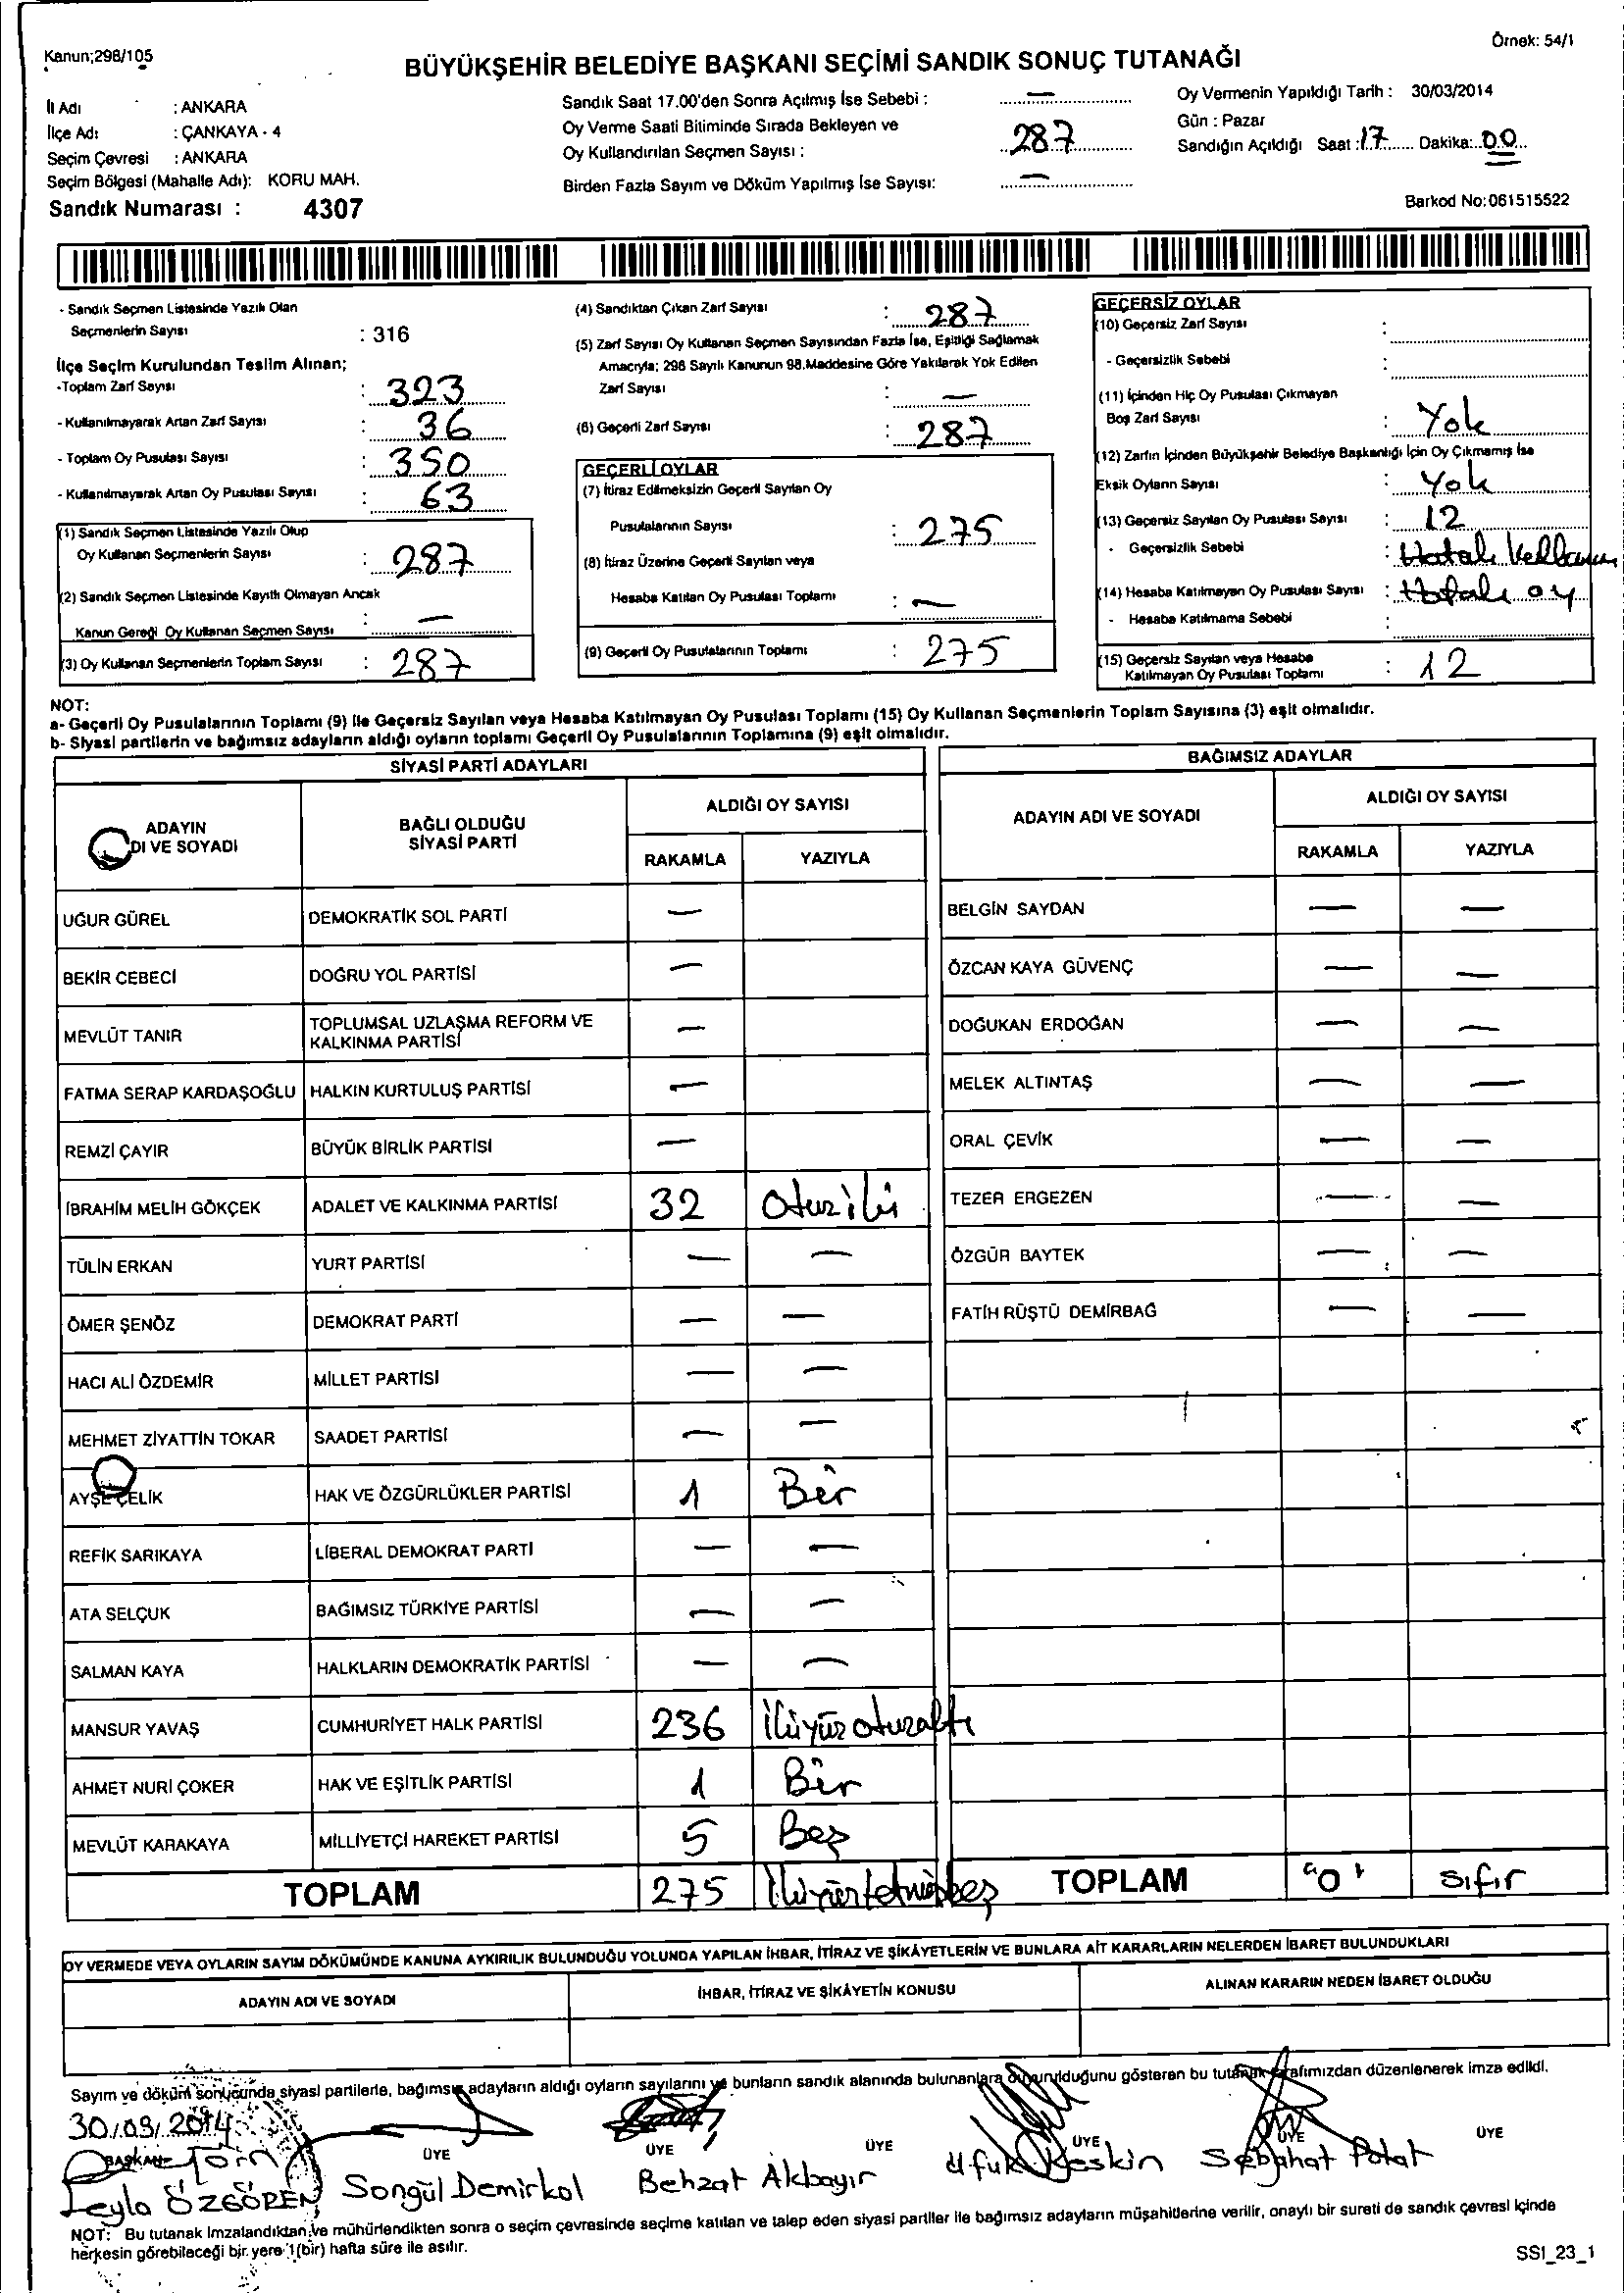 Kanun;298/105
Örnek: 54/1
BÜYÜKŞEHİR BELEDİYE BAŞKANI SEÇİMİ SANDIK SONUÇ TUTANAĞI
İl Adı : ANKARA
İlçe Adı : ÇANKAYA - 4
Seçim Çevresi : ANKARA
Seçim Bölgesi (Mahalle Adı): KORU MAH.
Sandık Numarası : 4307
Sandık Saat 17.00'den Sonra Açılmış İse Sebebi : —
Oy Verme Saati Bitiminde Sırada Bekleyen ve
Oy Kullandırılan Seçmen Sayısı : 287
Birden Fazla Sayım ve Döküm Yapılmış İse Sayısı: —
Oy Vermenin Yapıldığı Tarih : 30/03/2014
Gün : Pazar
Sandığın Açıldığı Saat : 17 Dakika: 00
Barkod No:061515522
- Sandık Seçmen Listesinde Yazılı Olan
Seçmenlerin Sayısı : 316
İlçe Seçim Kurulundan Teslim Alınan;
-Toplam Zarf Sayısı : 323
- Kullanılmayarak Artan Zarf Sayısı : 36
- Toplam Oy Pusulası Sayısı : 350
- Kullanılmayarak Artan Oy Pusulası Sayısı : 63
(1) Sandık Seçmen Listesinde Yazılı Olup
Oy Kullanan Seçmenlerin Sayısı : 287
(2) Sandık Seçmen Listesinde Kayıtlı Olmayan Ancak
Kanun Gereği Oy Kullanan Seçmen Sayısı : —
(3) Oy Kullanan Seçmenlerin Toplam Sayısı : 287
(4) Sandıktan Çıkan Zarf Sayısı : 287
(5) Zarf Sayısı Oy Kullanan Seçmen Sayısından Fazla İse, Eşitliği Sağlamak
Amacıyla; 298 Sayılı Kanunun 98.Maddesine Göre Yakılarak Yok Edilen
Zarf Sayısı : —
(6) Geçerli Zarf Sayısı : 287
GEÇERLİ OYLAR
(7) İtiraz Edilmeksizin Geçerli Sayılan Oy
Pusulalarının Sayısı : 275
(8) İtiraz Üzerine Geçerli Sayılan veya
Hesaba Katılan Oy Pusulası Toplamı : —
(9) Geçerli Oy Pusulalarının Toplamı : 275
GEÇERSİZ OYLAR
(10) Geçersiz Zarf Sayısı :
- Geçersizlik Sebebi :
(11) İçinden Hiç Oy Pusulası Çıkmayan
Boş Zarf Sayısı : Yok
(12) Zarfın İçinden Büyükşehir Belediye Başkanlığı İçin Oy Çıkmamış İse
Eksik Oyların Sayısı : Yok
(13) Geçersiz Sayılan Oy Pusulası Sayısı : 12
- Geçersizlik Sebebi : Hatalı
(14) Hesaba Katılmayan Oy Pusulası Sayısı : Hatalı oy
- Hesaba Katılmama Sebebi :
(15) Geçersiz Sayılan veya Hesaba
Katılmayan Oy Pusulası Toplamı : 12
NOT:
a- Geçerli Oy Pusulalarının Toplamı (9) ile Geçersiz Sayılan veya Hesaba Katılmayan Oy Pusulası Toplamı (15) Oy Kullanan Seçmenlerin Toplam Sayısına (3) eşit olmalıdır.
b- Siyasi partilerin ve bağımsız adayların aldığı oyların toplamı Geçerli Oy Pusulalarının Toplamına (9) eşit olmalıdır.
SİYASİ PARTİ ADAYLARI
ADAYIN
DI VE SOYADI
BAĞLI OLDUĞU
SİYASİ PARTİ
ALDIĞI OY SAYISI
RAKAMLA YAZIYLA
UĞUR GÜREL DEMOKRATİK SOL PARTİ —
BEKİR CEBECİ DOĞRU YOL PARTİSİ —
MEVLÜT TANIR TOPLUMSAL UZLAŞMA REFORM VE
KALKINMA PARTİSİ —
FATMA SERAP KARDAŞOĞLU HALKIN KURTULUŞ PARTİSİ —
REMZİ ÇAYIR BÜYÜK BİRLİK PARTİSİ —
İBRAHİM MELİH GÖKÇEK ADALET VE KALKINMA PARTİSİ 32 Otuziki
TÜLİN ERKAN YURT PARTİSİ — —
ÖMER ŞENÖZ DEMOKRAT PARTİ — —
HACI ALİ ÖZDEMİR MİLLET PARTİSİ — —
MEHMET ZİYATTİN TOKAR SAADET PARTİSİ — —
AYŞE ÇELİK HAK VE ÖZGÜRLÜKLER PARTİSİ 1 Bir
REFİK SARIKAYA LİBERAL DEMOKRAT PARTİ — —
ATA SELÇUK BAĞIMSIZ TÜRKİYE PARTİSİ — —
SALMAN KAYA HALKLARIN DEMOKRATİK PARTİSİ — —
MANSUR YAVAŞ CUMHURİYET HALK PARTİSİ 236 İkiyüzotuzaltı
AHMET NURİ ÇOKER HAK VE EŞİTLİK PARTİSİ 1 Bir
MEVLÜT KARAKAYA MİLLİYETÇİ HAREKET PARTİSİ 5 Beş
TOPLAM 275 İkiyüzyetmişbeş
BAĞIMSIZ ADAYLAR
ADAYIN ADI VE SOYADI
ALDIĞI OY SAYISI
RAKAMLA YAZIYLA
BELGİN SAYDAN — —
ÖZCAN KAYA GÜVENÇ — —
DOĞUKAN ERDOĞAN — —
MELEK ALTINTAŞ — —
ORAL ÇEVİK — —
TEZER ERGEZEN — —
ÖZGÜR BAYTEK — —
FATİH RÜŞTÜ DEMİRBAĞ — —
TOPLAM "0" Sıfır
OY VERMEDE VEYA OYLARIN SAYIM DÖKÜMÜNDE KANUNA AYKIRILIK BULUNDUĞU YOLUNDA YAPILAN İHBAR, İTİRAZ VE ŞİKÂYETLERİN VE BUNLARA AİT KARARLARIN NELERDEN İBARET BULUNDUKLARI
ADAYIN ADI VE SOYADI
İHBAR, İTİRAZ VE ŞİKÂYETİN KONUSU
ALINAN KARARIN NEDEN İBARET OLDUĞU
Sayım ve döküm sonucunda siyasi partilerle, bağımsız adayların aldığı oyların sayılarını ve bunların sandık alanında bulunanlara duyurulduğunu gösteren bu tutanak tarafımızdan düzenlenerek imza edildi.
30/03/2014
BAŞKAN ÜYE ÜYE ÜYE ÜYE ÜYE ÜYE
Leyla ÖZGÖREN Songül Demirkol Behzat Akbayır Ufuk Keskin Sebahat Polat
NOT: Bu tutanak imzalandıktan ve mühürlendikten sonra o seçim çevresinde seçime katılan ve talep eden siyasi partiler ile bağımsız adayların müşahitlerine verilir, onaylı bir sureti de sandık çevresi içinde
herkesin görebileceği bir yere 1(bir) hafta süre ile asılır.
SSI_23_1